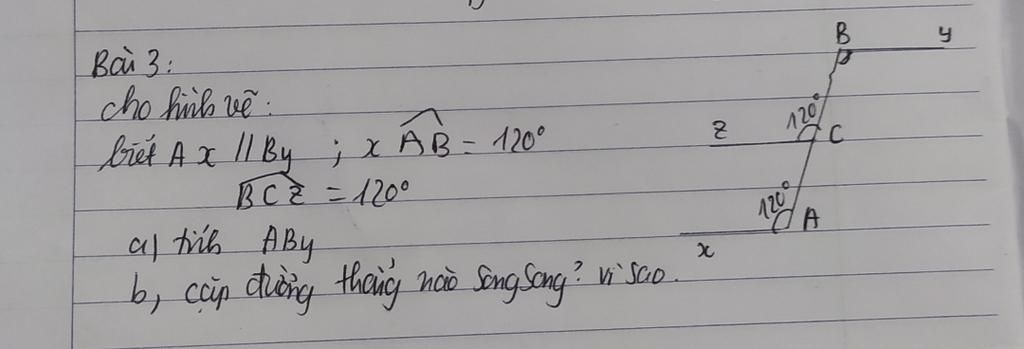 Bài 3:
cho hình vẽ:
biết Ax // By ; xAB = 120°
BCz = 120°
a) tính ABy
b, cặp đường thẳng nào song song? vì sao.
B y
120°
z C
120°
A
x